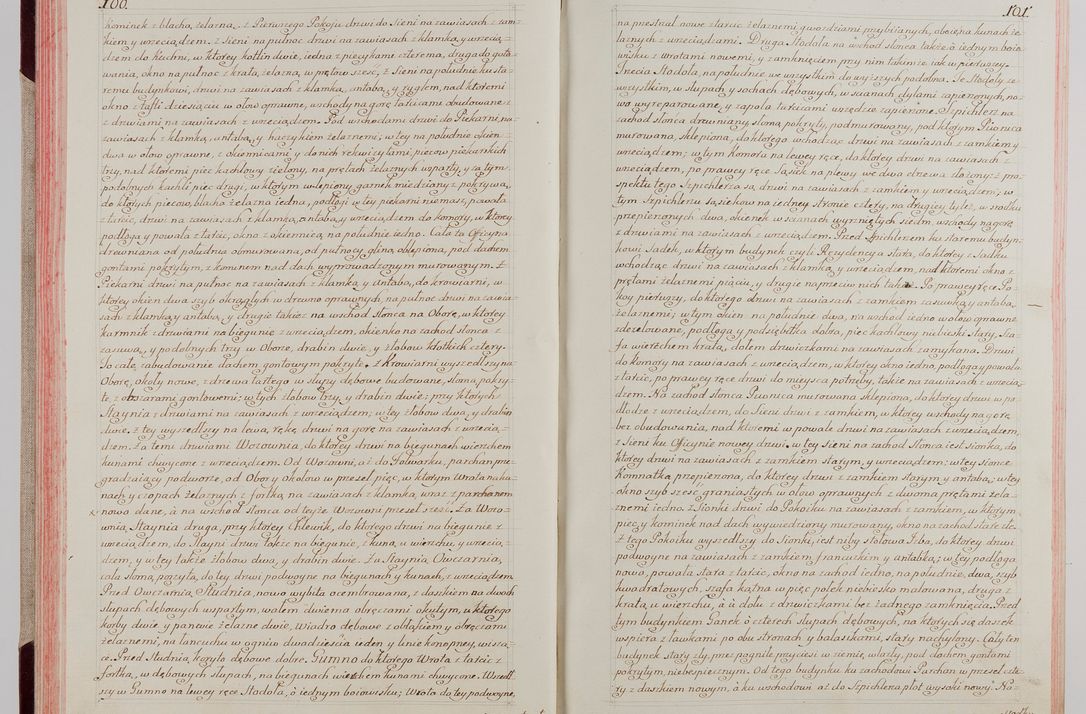 100.
kominek z blachą żelazną. z Pierwszego Pokoju drzwi do Sieni na zawiasach z zam=
kiem y wrzeciądzem. z Sieni na pułnoc drzwi na zawiasach z klamką, y wrzecią=
dzem do Kuchni, w ktorey kotlin dwie, iedna z piecykami czterema, druga do goto=
wania, okno na pułnoc z kratą żelazną, w prętow szesc, z Sieni na południe ku sta=
remu budynkowi, drzwi na zawiasach z klamką, antabą, y ryglem, nad ktoremi
okno z tafli dziesiąciu w ołow oprawne, wschody na gorę tarcicami obudowane z
z drzwiami na zawiasach z wrzeciądzem. Pod wschodami drzwi do Piekarni, na
zawiasach z klamką, antabą, y haczykiem żelaznemi; w tey na południe okien
dwa w ołow oprawne, z okiennicami y do nich rekwizytami, piecow piekarskich
trzy, nad ktoremi piec kachlowy zielony, na prętach żelaznych wsparty, y za tym
podobnych kachli piec drugi, w ktorym wlepiony garnek miedziany z pokrywą,
do ktorych piecow, blacha żelazna iedna, podłogi w tey piekarni niemasz, powała
z tarcic, drzwi na zawiasach z klamką, antabą, y wrzeciądzem do komory, w ktorey
podłoga y powała z tarcic, okno z okiennicą, na południe iedno. Cała ta Officyna
drewniana od południa obmurowana, od pułnocy gliną oblepiona, pod dachem
gontami pokrytym, z kominem nad dach wyprowadzonym murowanym. z
Piekarni drzwi na pułnoc na zawiasach z klamką y antabą, do krowiarni, w
ktorey okien dwa szyb okrągłych w drewno oprawnych, na pułnoc drzwi na zawia=
sach z klamką, y antabą, y drugie takież na wschod Słonca na Oborę, w ktorey
karmnik z drzwiami na biegunie z wrzeciądzem, okienko na zachod słonca z
zasuwą, y podobnych trzy w Oborze, drabin dwie, y żłobow krotkich cztery.
To całe zabudowanie dachem gontowym pokryte. z Krowiarni wyszedłszy na
Oborę, okoły nowe, z drzewa tartego w słupy dębowe budowane, słomą pokry=
te, z obszarami gontowemi; w tych żłobow trzy, y drabin dwie: przy ktorych
Staynia z drzwiami na zawiasach z wrzeciądzem; w tey żłobow dwa, y drabin
dwie. z tey wyszedłszy na lewą rękę, drzwi na gorę na zawiasach z wrzecią=
dzem. Za temi drzwiami Wozownia, do ktorey drzwi na biegunach wierzchem
kunami chwycone z wrzeciądzem. Od Wozowni, aż do Folwarku, parchan prze=
gradzający podworze, od Obory Okołow w przeseł pięc, w ktorym Wrota na ha=
nach y czopach żelaznych z fortką, na zawiasach z klamką, wraz z parchanem
nowo dane, à na wschod słonca od teyże Wozowni przeseł szesc. Za Wozo=
wnią, Staynia druga, przy ktorey Chlewik, do ktorego drzwi na biegunie z
wrzeciądzem, do stayni drzwi także na biegunie, z kuną, u wierzchu, y wrzecią=
dzem, y w tey także żłobow dwa, y drabin dwie. Za Staynią Owczarnia,
cała słomą poszyta, do tey drzwi podwoyne na biegunach y kunach, z wrzeciądzem
Przed Owczarnią Studnia, nowo wybita ocembrowana, z daszkiem na dwoch
słupach dębowych wspartym, wałem dwiema obręczami okutym, u ktorego
korby dwie y panwie żelazne dwie, Wiadro dębowe z obłąkiem y obręczami
żelaznemi, na łancuchu w ogniw dwadziescia ieden y linie konopney, wiszą=
ce. Przed Studnią, koryto dębowe dobre. Gumno do ktorego Wrota z tarcic z
fortką, w dębowych słupach, na biegunach wierzchem kunami chwycone. Wszedł=
szy w Gumno na lewey ręce Stodoła, ò iednym boiowisku; Wrota do tey podwoyne,
101.
na przestrzał nowe z tarcic żelaznemi gwozdziami przybijanych, obeięta kunach że=
laznych z wrzeciądzami. Druga Stodoła na wschod słonca także ò iednym boio=
wisku z wrotami nowemi, y zamknięciem przy nim takim że, iak w pierwszey.
Trzecia Stodoła, na południe, we wszystkim do wyższych podobna. Te Stodoły ze
wszystkim, w słupach y sochach dębowych, w scianach dylami zapierzonych, no=
wo wyreparowane, y zapola tarcicami wszędzie zapierzone. Szpichlerz na
zachod słonca drewniany słomą pokryty, podmurowany, pod ktorym Piwnica
murowana, sklepiona, do ktorego wchodząc drzwi na zawiasach z zamkiem y
wrzeciądzem; w tym Komora na lewey ręce, do ktorey drzwi na zawiasach z
wrzeciądzem, po prawey ręce Sąsiek na plewy we dwa drzewa złożony: z pro=
spektu tego Szpichlerza są, drzwi na zawiasach z zamkiem y wrzeciądzem; w
tym Szpichlerzu sąsiekow na iedney stronie cztery, na drugiey tyleż, w srodku
przepierzonych dwa, okienek w scianach wyrzniętych siedm, wschody na gorę
z drzwiami na zawiasach z wrzeciądzem. Przed Szpichlerzem ku staremu budyn=
kowi Sadek, w ktorym budynek czyli Rezydencya stara, do ktorey z Sadku
wchodząc drzwi na zawiasach z klamką, y wrzeciądzem, nad ktoremi okno z
prętami żelaznemi pięciu, y drugie naprzeciw nich takie. Po prawey ręce Po=
koy pierwszy, do ktorego drzwi na zawiasach z zamkiem zasuwką y antabą,
żelaznemi; w tym okien na południe dwa, na wschod iedno w ołow oprawne
zdezelowane, podłoga y podsiębitka dobra, piec kachlowy nalaski Stary, Sza=
fa wierzchem kratą, dołem drzwiczkami na zawiasach zamykana. Drzwi
do Komory na zawiasach z wrzeciądzem, w ktorey okno iedno, podłoga y powała
z tarcic, po prawey ręce drzwi do mieysca potrzeby, także na zawiasach z wrzecią=
dzem. Na zachod słonca Piwnica murowana sklepiona, do ktorey drzwi w po=
dłodze z wrzeciądzem, do Sieni drzwi z zamkiem, w ktorey wschody na gorę
bez obudowania, nad ktoremi w powale drzwi na zawiasach z wrzeciądzem,
z Sieni ku Officynie nowey drzwi. w tey sieni na zachod Słonca iest sionka, do
ktorey drzwi na zawiasach z zamkiem starym, y wrzeciądzem; w tey sionce
Komnatka przepierzona, do ktorey drzwi z zamkiem starym y antabą, w tey
okno szyb szesc graniastych w ołow oprawnych z dwoma prętami żela=
znemi iedno. z Sionki drzwi do Pokoiku na zawiasach z zamkiem, w ktorym
piec, y kominek nad dach wywiedziony murowany, okno na zachod stare złe.
z tego Pokoiku wyszedłszy do Sionki, iest niby stołowa Izba, do ktorey drzwi
podwoyne na zawiasach z zamkiem francuzkim y antabką; w tey podłoga
nowa, powała stara z tarcic, okno na zachod iedno, na południe, dwa, szyb
kwadratowych, szafa kątna w pięc połek niebiesko malowana, druga z
kratą, u wierzchu, à ù dołu z drzwiczkami bez żadnego zamknięcia. Przed
tym budynkiem Ganek ò czterech słupach dębowych, na ktorych się daszek
wspiera z ławkami po obu stronach y balasikami, stary nachylony. Cały ten
budynek Stary zły, przez pognite przyciesi w ziemię wlazły, pod dachem gontami
pokrytym, niebespiecznym. Od tego budynku ku zachodowi Parchan w przeseł czte=
ry z daszkiem nowym, à ku wschodowi aż do Szpichlerza płot wysoki nowy. Na=